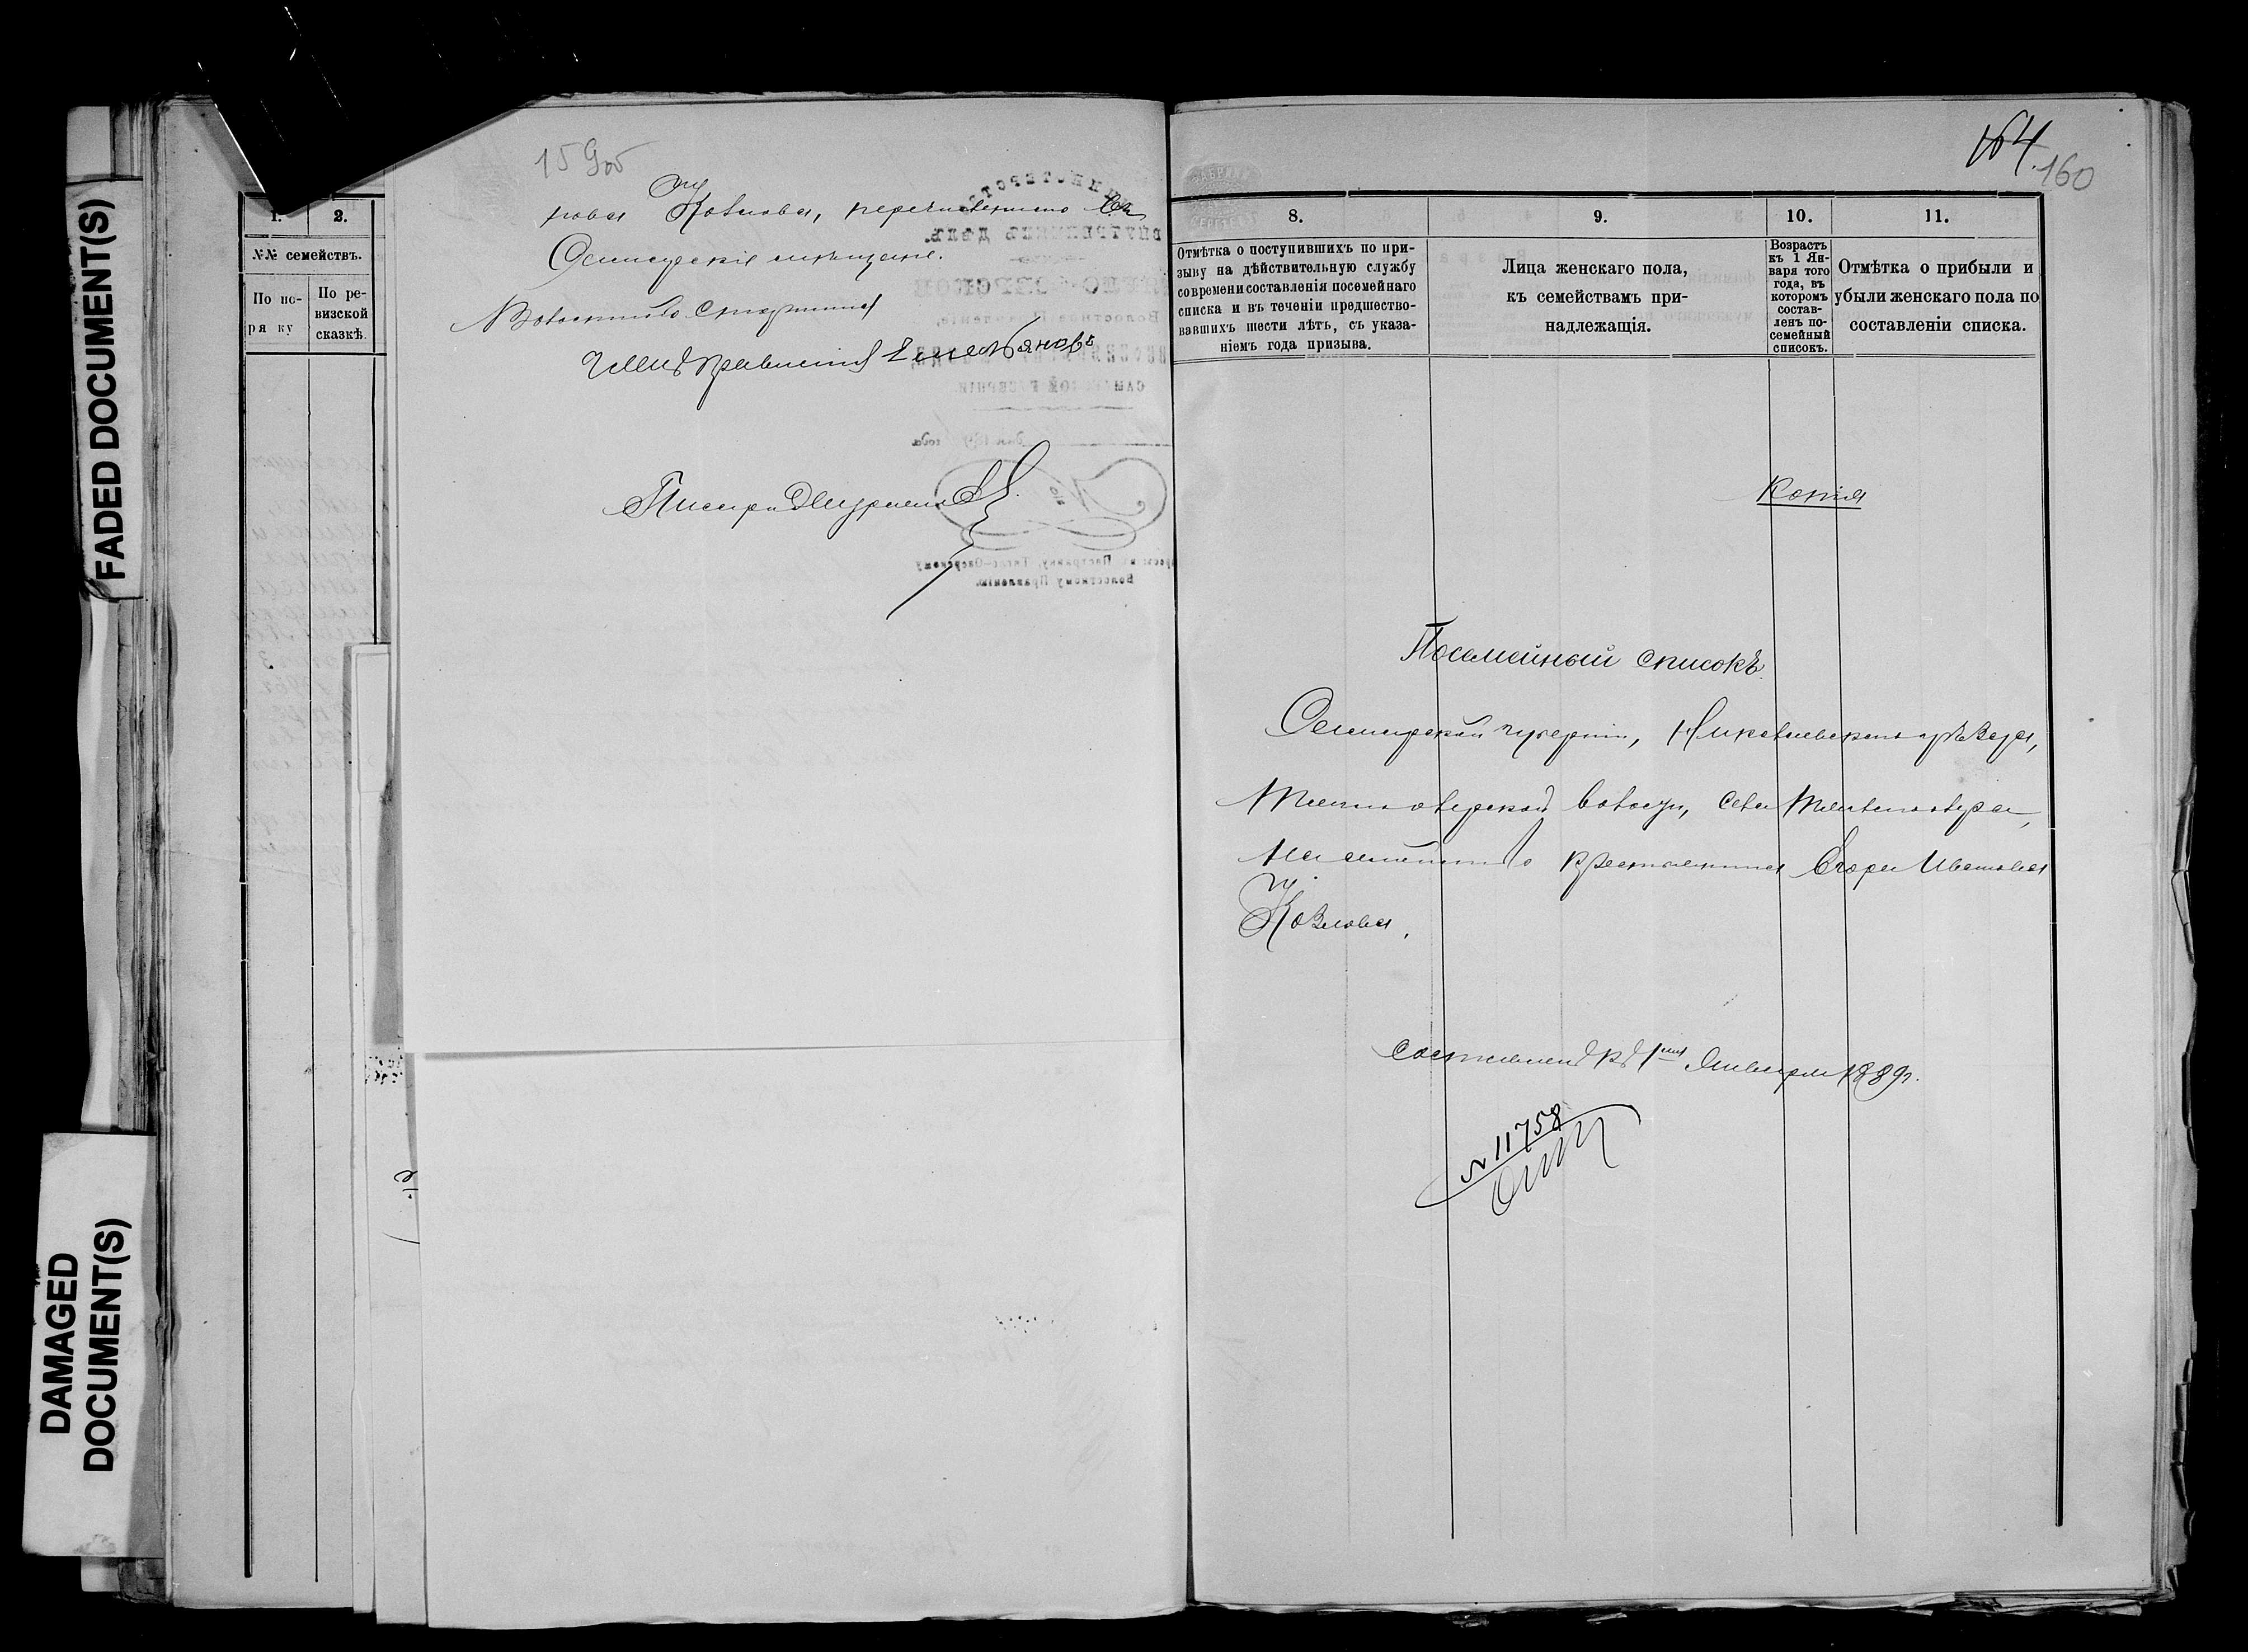 FADED DOCUMENT(S)
DAMAGED
DOCUMENT(S)
1.
2.
№№ семействъ.
По по-
ря ку
По ре-
визской
сказкѣ.
159об
нова Козлова, перечислено въ
Самарскіе мѣщане.
Волостной Старшина
Емельяновъ
Писарь
164
160
8.
9.
10.
11.
Отмѣтка о поступившихъ по при-
зыву на дѣйствительную службу
современи составленія посемейнаго
списка и въ теченіи предшество-
вавшихъ шести лѣтъ, съ указа-
ніемъ года призыва.
Лица женскаго пола,
къ семействамъ при-
надлежащія.
Возрастъ
къ 1 Ян-
варя того
года, въ
которомъ
состав-
ленъ по-
семейный
списокъ.
Отмѣтка о прибыли и
убыли женскаго пола по
составленіи списка.
Копія
Посемейный списокъ
Самарской губерніи, Николаевскаго уѣзда,
волости, села
На семейство крестьянина Егора Иванова
Козлова.
Составленъ къ 1му Января 1889г.
№ 11758